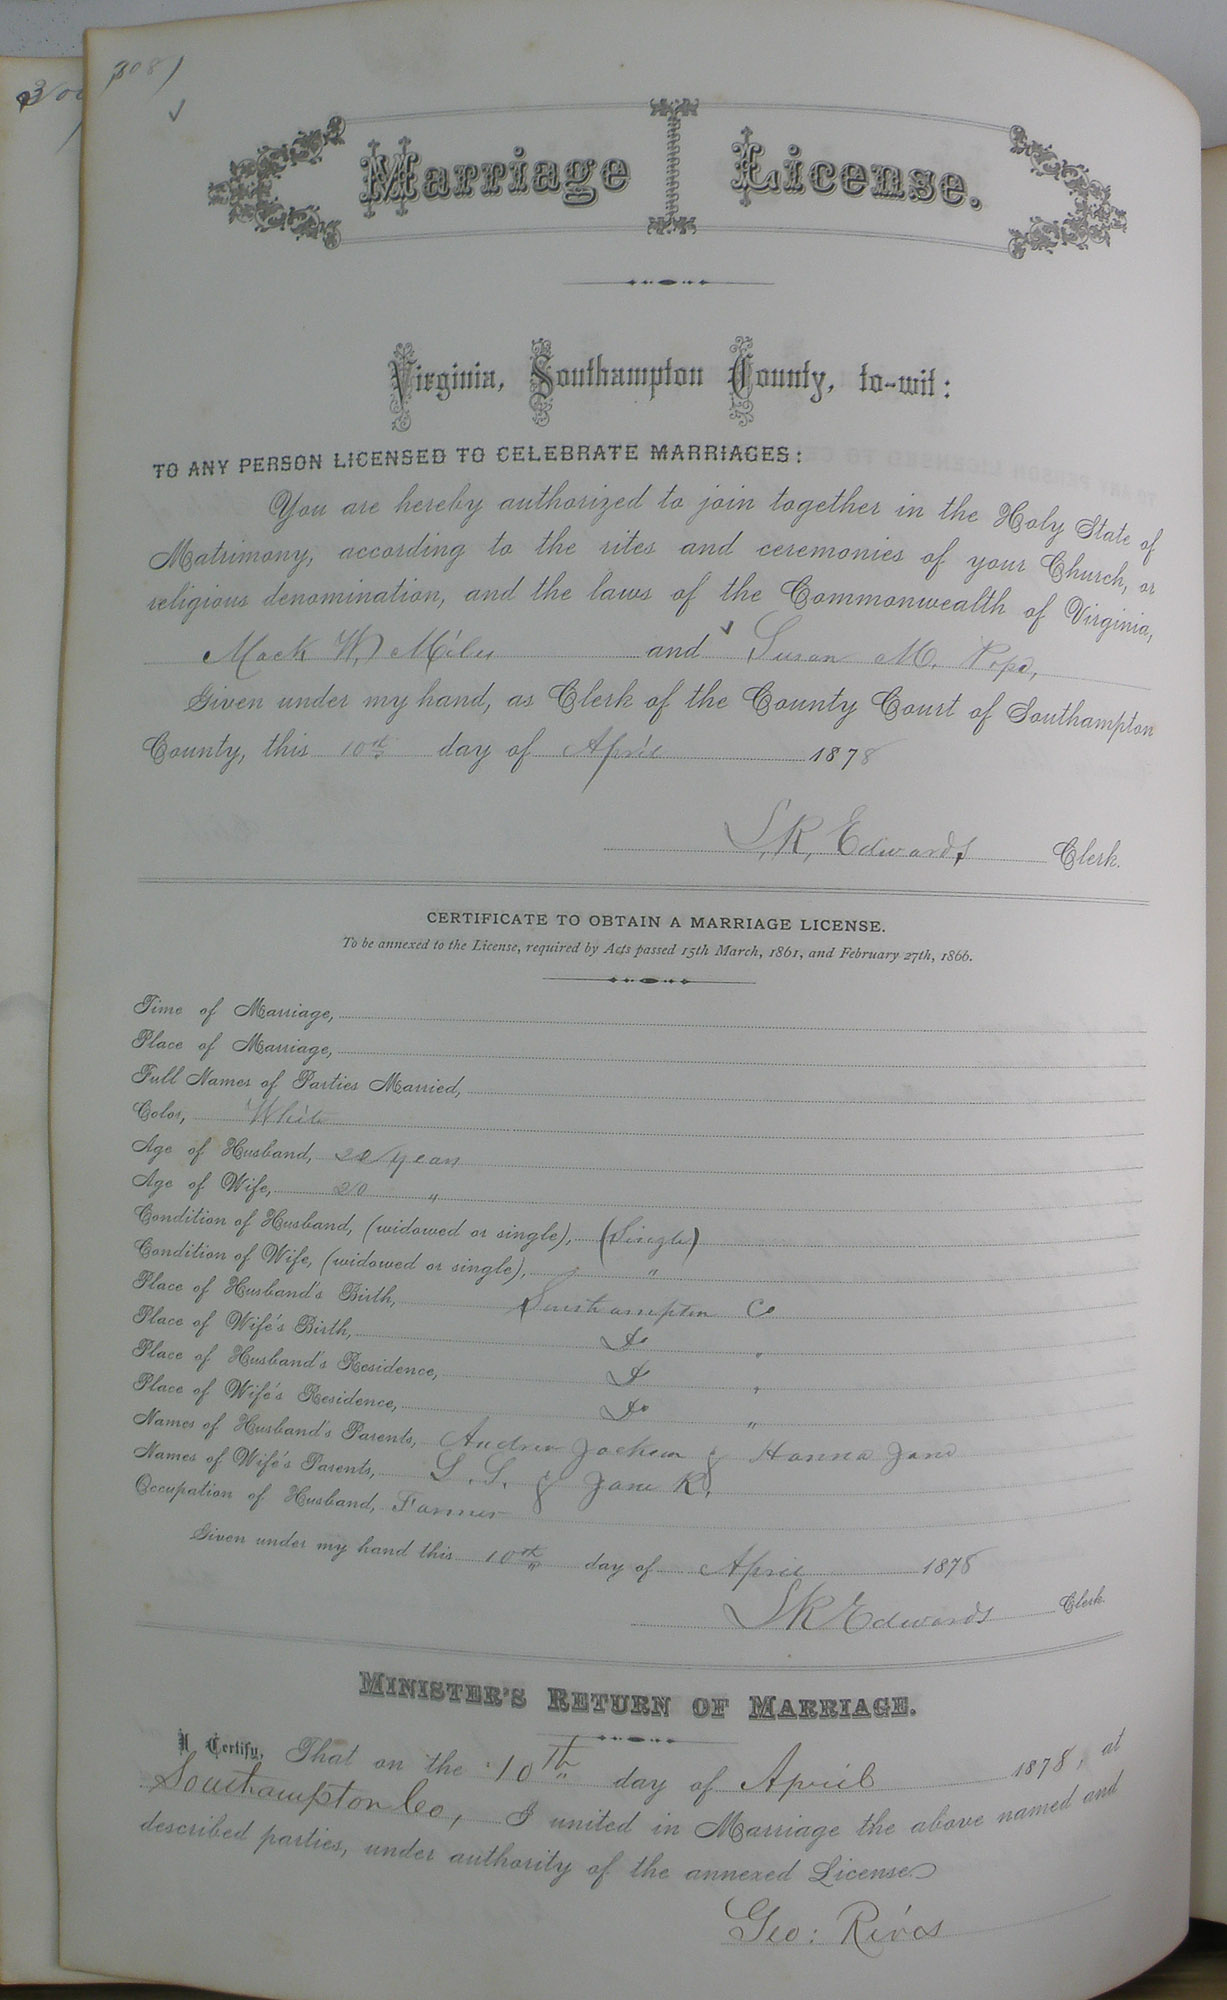 308
Marriage License.
Virginia, Southampton County, to-wit:
TO ANY PERSON LICENSED TO CELEBRATE MARRIAGES:
You are hereby authorized to join together in the Holy State of
Matrimony, according to the rites and ceremonies of your Church, or
religious denomination, and the laws of the Commonwealth of Virginia,
Mack W. Miles and Susan M. Pope,
Given under my hand, as Clerk of the County Court of Southampton
County, this 10th day of April 1878
S. R. Edwards Clerk.
CERTIFICATE TO OBTAIN A MARRIAGE LICENSE.
To be annexed to the License, required by Acts passed 15th March, 1861, and February 27th, 1866.
Time of Marriage,
Place of Marriage,
Full Names of Parties Married,
Color, White
Age of Husband, years
Age of Wife, 20 "
Condition of Husband, (widowed or single), (Single)
Condition of Wife, (widowed or single), "
Place of Husband's Birth, Southampton Co
Place of Wife's Birth, Do "
Place of Husband's Residence, Do "
Place of Wife's Residence, Do "
Names of Husband's Parents, Andrew Jackson & Hanna Jane
Names of Wife's Parents, S. S. & Jane R.
Occupation of Husband, Farmer
Given under my hand this 10th day of April 1878
S R Edwards Clerk.
MINISTER'S RETURN OF MARRIAGE.
I Certify, That on the 10th day of April 1878, at
Southampton Co, I united in Marriage the above named and
described parties, under authority of the annexed License.
Geo: Rives